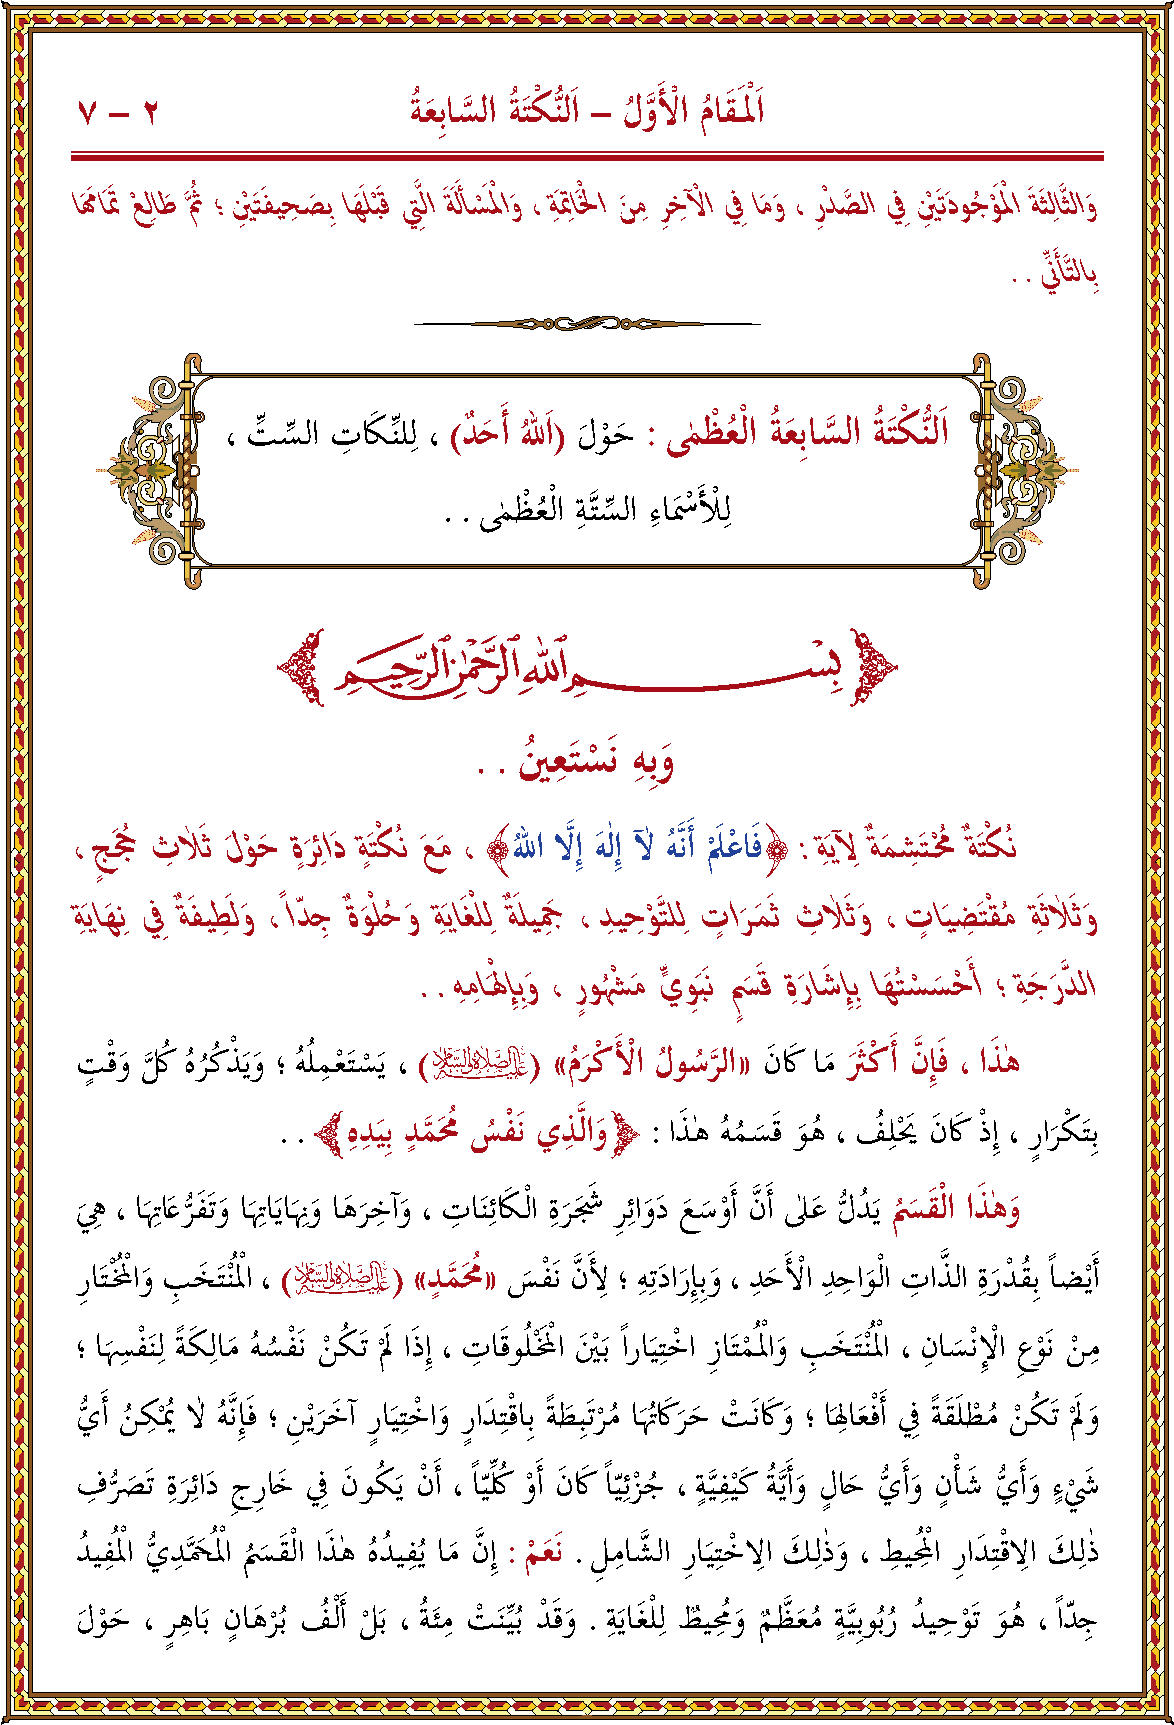 اَلْمَقَامُ الْأَوَّلُ – اَلنُّكْتَةُ السَّابِعَةُ
٢ – ٧
وَالثَّالِثَةَ الْمَوْجُودَتَيْنِ فِي الصَّدْرِ ، وَمَا فِي الْآخِرِ مِنَ الْخَاتِمَةِ ، وَالْمَسْأَلَةَ الَّتِي قَبْلَهَا بِصَحِيفَتَيْنِ ؛ ثُمَّ طَالِعْ تَمَامَهَا
بِالتَّأَنِّي . .
اَلنُّكْتَةُ السَّابِعَةُ الْعُظْمٰى : حَوْلَ (اَللهُ أَحَدٌ) ، لِلنِّكَاتِ السِّتِّ ،
لِلْأَسْمَاءِ السِّتَّةِ الْعُظْمٰى . .
بِسْمِ اللهِ الرَّحْمٰنِ الرَّحِيمِ
وَبِهِ نَسْتَعِينُ . .
نُكْتَةٌ مُحْتَشِمَةٌ لِآيَةِ : ﴿فَاعْلَمْ أَنَّهُ لآ إِلٰهَ إِلَّا اللهُ﴾ ، مَعَ نُكْتَةٍ دَائِرَةٍ حَوْلَ ثَلَاثِ حُجَجٍ ،
وَثَلَاثَةِ مُقْتَضِيَاتٍ ، وَثَلَاثِ ثَمَرَاتٍ لِلتَّوْحِيدِ ، جَمِيلَةٌ لِلْغَايَةِ وَحُلْوَةٌ جِدّاً ، وَلَطِيفَةٌ فِي نِهَايَةِ
الدَّرَجَةِ ؛ أَحْسَسْتُهَا بِإِشَارَةِ قَسَمٍ نَبَوِيٍّ مَشْهُورٍ ، وَبِإِلْهَامِهِ . .
هٰذَا ، فَإِنَّ أَكْثَرَ مَا كَانَ «الرَّسُولُ الْأَكْرَمُ» (عَلَيْهِ الصَّلَاةُ وَالسَّلَامُ) ، يَسْتَعْمِلُهُ ؛ وَيَذْكُرُهُ كُلَّ وَقْتٍ
بِتَكْرَارٍ ، إِذْ كَانَ يَحْلِفُ ، هُوَ قَسَمُهُ هٰذَا : ﴿وَالَّذِي نَفْسُ مُحَمَّدٍ بِيَدِهِ﴾ . .
وَهٰذَا الْقَسَمُ يَدُلُّ عَلٰى أَنَّ أَوْسَعَ دَوَائِرِ شَجَرَةِ الْكَائِنَاتِ ، وَآخِرَهَا وَنِهَايَاتِهَا وَتَفَرُّعَاتِهَا ، هِيَ
أَيْضاً بِقُدْرَةِ الذَّاتِ الْوَاحِدِ الْأَحَدِ ، وَبِإِرَادَتِهِ ؛ لِأَنَّ نَفْسَ «مُحَمَّدٍ» (عَلَيْهِ الصَّلَاةُ وَالسَّلَامُ) ، الْمُنْتَخَبِ وَالْمُخْتَارِ
مِنْ نَوْعِ الْإِنْسَانِ ، الْمُنْتَخَبِ وَالْمُمْتَازِ اخْتِيَاراً بَيْنَ الْمَخْلُوقَاتِ ، إِذَا لَمْ تَكُنْ نَفْسُهُ مَالِكَةً لِنَفْسِهَا ؛
وَلَمْ تَكُنْ مُطْلَقَةً فِي أَفْعَالِهَا ؛ وَكَانَتْ حَرَكَاتُهَا مُرْتَبِطَةً بِاقْتِدَارٍ وَاخْتِيَارٍ آخَرَيْنِ ؛ فَإِنَّهُ لَا يُمْكِنُ أَيُّ
شَيْءٍ وَأَيُّ شَأْنٍ وَأَيُّ حَالٍ وَأَيَّةُ كَيْفِيَّةٍ ، جُزْئِيّاً كَانَ أَوْ كُلِّيّاً ، أَنْ يَكُونَ فِي خَارِجِ دَائِرَةِ تَصَرُّفِ
ذٰلِكَ الِاقْتِدَارِ الْمُحِيطِ ، وَذٰلِكَ الِاخْتِيَارِ الشَّامِلِ . نَعَمْ : إِنَّ مَا يُفِيدُهُ هٰذَا الْقَسَمُ الْمُحَمَّدِيُّ الْمُفِيدُ
جِدّاً ، هُوَ تَوْحِيدُ رُبُوبِيَّةٍ مُعَظَّمٌ وَمُحِيطٌ لِلْغَايَةِ . وَقَدْ بُيِّنَتْ مِئَةُ ، بَلْ أَلْفُ بُرْهَانٍ بَاهِرٍ ، حَوْلَ